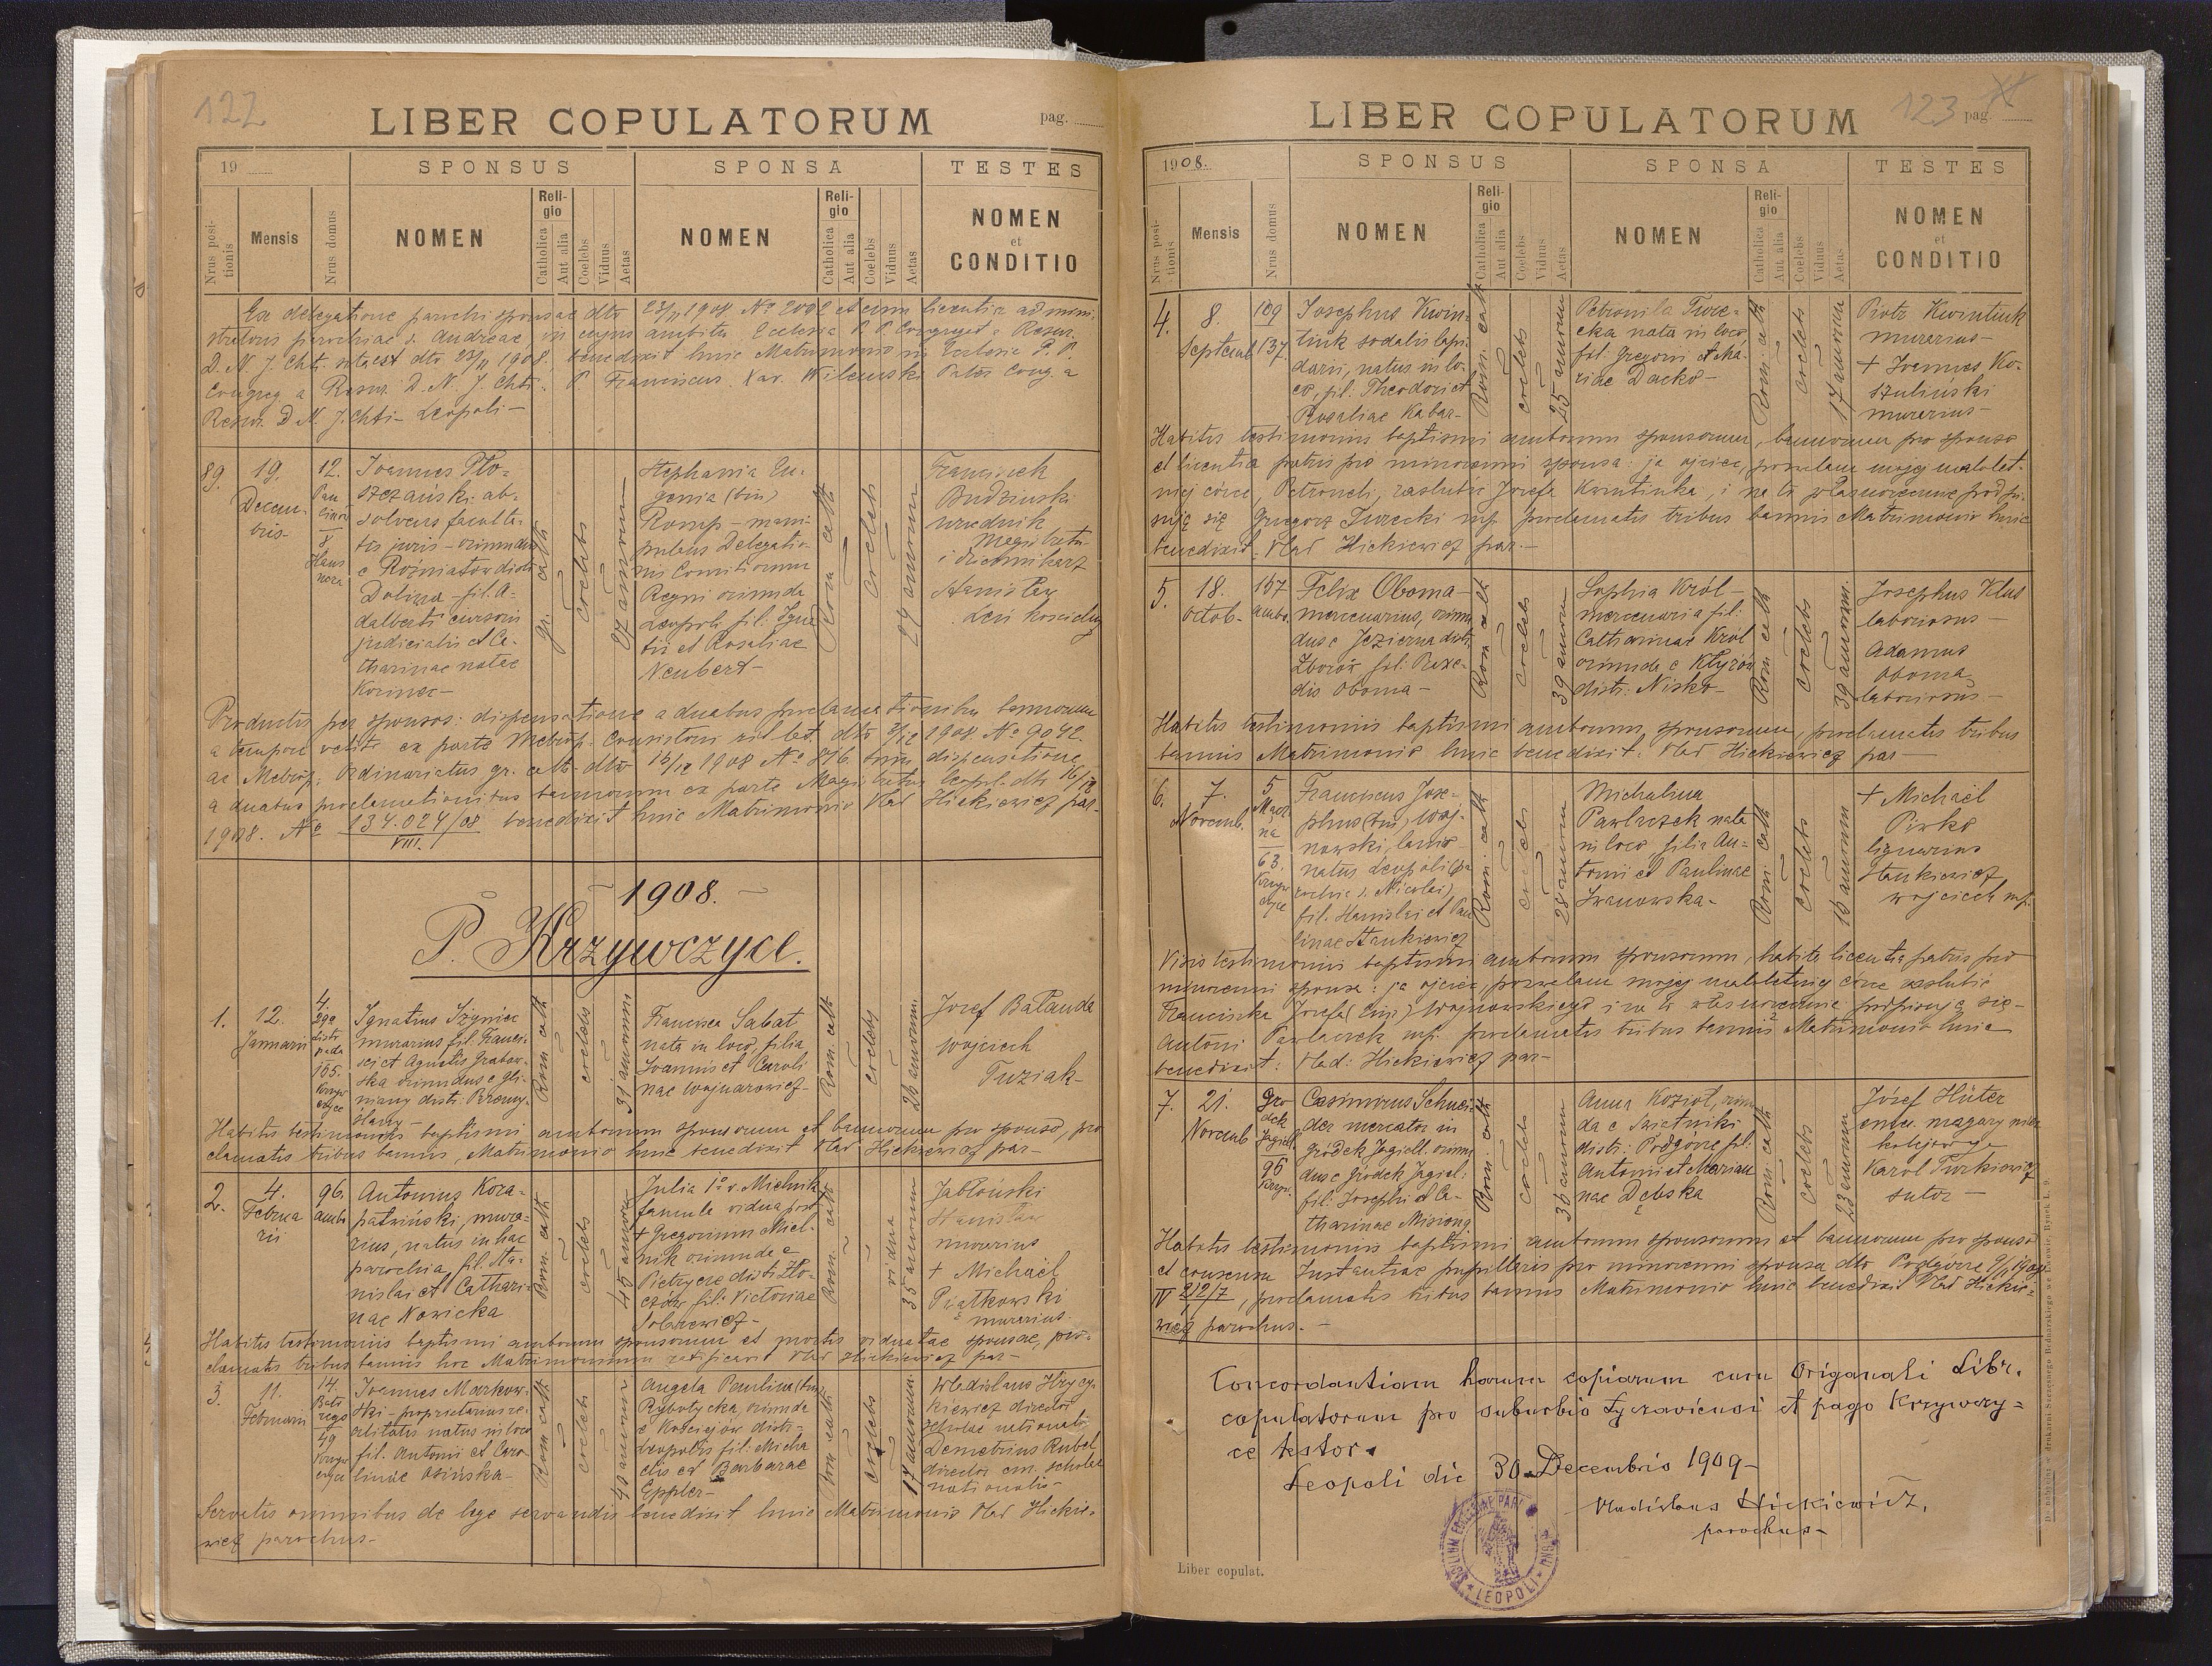 122
LIBER COPULATORUM
pag.
19
SPONSUS
SPONSA
TESTES
Nrus positionis
Mensis
Nrus domus
NOMEN
Religio
Catholica
Aut alia
Coelebs
Viduus
Aetas
NOMEN
Religio
Catholica
Aut alia
Coelebs
Viduus
Aetas
NOMEN
et
CONDITIO
Ex delegatione parochi sponsae dto 23/11 1908 No 2002 et cum licentia admini-
stratoris parochiae s. Andreae, in cujus ambitu Ecclesia P. P. Congregat. a Resur.
D. N. J. Chti sita est dto 23/11 1908, benedixit huic Matrimonio in Ecclesia P. P.
Congreg. a Resur. D. N. J. Chti. P. Franciscus Xav. Pater Cong. a
Resur. D. N. J. Chti - Leopoli -
89.
19.
Decem-
bris.
12.
8
Joannes Pło-
szczański ab-
solvens faculta-
tis juris - oriundus
e Rożniatów distr.
Dolina - fil. A-
dalberti cursoris
judicialis et Ca-
tharinae natae
Korinec -
gr. cath
coelebs
27 annorum
Stephania Eu-
genia (bin)
Romp - mani-
pulans Delegatio-
nis Comitiorum
Regni oriunda
Leopoli fil. Igna-
tii et Rosaliae
Neubert -
Rom cath
coelebs
24 annorum
Franciszek
Budzinski
urzednik
Magistratu
i dziennikarz
Stanisław
Productis per sponsos: dispensatione a duabus proclamationibus bannorum
a tempore vetito ex parte Metrop. Consistorii rit. lat. dto 1908 No 9042
ac Metrop. Ordinariatus gr. cath. dto 15/12 1908 No 876. tum dispensatione
a duabus proclamationibus bannorum ex parte Magistratus Leopol. dto 16/12
1908. No 134.024/08 benedixit huic Matrimonio Vlad Hickiewicz par-
VIII.
1908.
P. Krzywczyce.
1.
12.
Januarii
4.
165.
Ignatius Iżyniec
murarius fil. Franci-
sci et Agnetis Grabow-
ska oriundus e Gli-
niany distr. Przemy-
ślany -
Rom cath
coelebs
31 annorum
Francisca Sabat
nata in loco, filia
Joannis et Caroli-
nae Wojnarowicz -
Rom. cath
coelebs
26 annorum.
Jozef Bałanda
Wojciech
Tuziak -
Habitis testimoniis baptismi amborum sponsorum et bannorum pro sponso, pro
clamatis tribus bannis, Matrimonio huic benedixit Vlad Hickiewicz par -
2.
4.
Februa
rii
96.
ambo
Antonius Kora-
patwiński, mura-
rius, natus in hac
parochia, fil. Sta-
nislai et Cathari-
nae Nowicka
Rom. cath
coelebs
45 annorum
Julia 1o v. Mielnik
famula vidua post
+ Gregorium Miel-
nik oriunda e
Pietrycze distr. Zło-
czów fil. Victoriae
Sobczewicz -
Rom. cath
vidua
35 annorum
Jabłoński
Stanisław
murarius
+ Michaël
Piątkowski
murarius.
Habitis testimoniis baptismi amborum sponsorum et mortis viduatae sponsae, pro-
clamatis tribus bannis hoc Matrimonium ratificavit Vlad Hickiewicz par -
3.
11.
Februarii
14.
49
Joannes Markow-
ski - proprietarius re-
alitatis natus in loco
fil. Antonii et Caro-
linae Osińska -
Rom cath
coelebs
40 annorum
Angela Paulina (bin)
Rybotycka oriunda
e Kościejów distr.
Leopolis fil. Micha
elis et Barbarae
Eppler -
Rom cath
coelebs
17 annorum.
Wladislaus Hrycy-
kiewicz director
scholae nationalis
Demetrius Rubel
director em. scholae
nationalis -
Servatis omnibus de lege servandis benedixit huic Matrimonio Vlad Hickie-
wicz parochus -
LIBER COPULATORUM
123
pag
1908.
SPONSUS
SPONSA
TESTES
Nrus positionis
Mensis
Nrus domus
NOMEN
Religio
Catholica
Aut alia
Coelebs
Viduus
Aetas
NOMEN
Religio
Catholica
Aut alia
Coelebs
Viduus
Aetas
NOMEN
et
CONDITIO
4.
8.
Septemb
109
137
Josephus Kwin-
tiuk sodalis lapi-
darii, natus in lo-
co, fil. Theodori et
Rosaliae Kabar-
Rom. cath
coelebs
25 annorum
Petronila Turec-
cka nata in loco,
fil. Gregorii et Ma-
riae Dacko -
Rom. cath
coelebs
17 annorum
Piotr Kwintiuk
murarius -
+ Joannes Ko-
szuliński
murarius -
Habitis testimoniis baptismi amborum sponsorum, bannorum pro sponso
et licentia patris pro minorenni sponsa: ja ojciec, pozwalam mojej małolet-
niej córce, Petroneli, zaslubić Jozefa Kwintiuka, i na to własnoręcznie podpi-
suję się Grzegorz Turecki mp. proclamatis tribus bannis Matrimonio huic
benedixit. Vlad Hickiewicz par. -
5.
18.
Octob.
157
ambo.
Felix Oboma -
mercenarius, oriun-
dus e Jezierna distr.
Zborów fil. Praxe-
dis Oboma -
Rom cath
coelebs
39 annorum
Sophia Król -
mercenaria fil.
Catharinae Król
oriunda e Kłyżów
distr. Nisko -
Rom cath
coelebs
39 annorum.
Josephus Klus
laboriosus -
Adamus
Oboma
laboriosus -
Habitis testimoniis baptismi amborum sponsorum, proclamatis tribus
bannis Matrimonio huic benedixit. Vlad Hickiewicz par -
6.
7.
Novemb.
5
63.
Franciscus Jose-
phus (bin) Woj-
nowski, lanio -
natus Leopoli (pa
rochia s. Nicolai),
fil. Stanislai et Pau
linae Stankiewicz
Rom: cath
coelebs
28 annorum
Michalina
Pawlaczek nata
in loco, filia An-
tonii et Paulinae
Iwanowska -
Rom: cath
coelebs
16 annorum
+ Michaël
Pirko
lignarius
Stankiewicz
Wojciech mp.
Visis testimoniis baptismi amborum sponsorum, habita licentia patris pro
minorenni sponsa: ja ojciec, pozwalam mojej małoletniej córce zaślubić
Franciszka Józefa (bin) Wojnowskiego i na to własnoręcznie podpisuję się -
Antoni Pawlaczek mp. proclamatis tribus bannis Matrimonio huic
benedixit: Vlad: Hickiewicz par -
7.
21.
Novemb
Gro
dek
Jagiell.
96
Casimirus Schnei-
der mercator in
gródek Jagiell. oriun
dus e Gródek Jagiel.
fil. Josephi et Ca-
tharinae Misiona
Rom. cath
coelebs
30 annorum
Anna Kozioł, oriun
da e Swiątniki
distr. Podgórze fil.
Antonii et Marian
nae Dębska
Rom. cath
coelebs
23 annorum
Józef Hüter
kolejowy
Karol Turkiewicz
sutor -
Habitis testimoniis baptismi amborum sponsorum et bannorum pro sponso
et consensu Instantiae pupillaris pro minorenni sponsa dto Podgórze
IV 212/7, proclamatis tribus bannis Matrimonio huic benedixit Vlad Hickie-
wicz parochus. -
Concordantiam harum copiarum cum Origanali Libr.
copulatorum pro suburbio Łyczaviensi et pago Krzywczy-
ce testor.
Leopoli die 30 Decembris 1909 -
Vladislaus Hickiewicz,
parochus -
SIGILLUM ECCLESIAE PAR
LEOPOLI
Liber copulat.